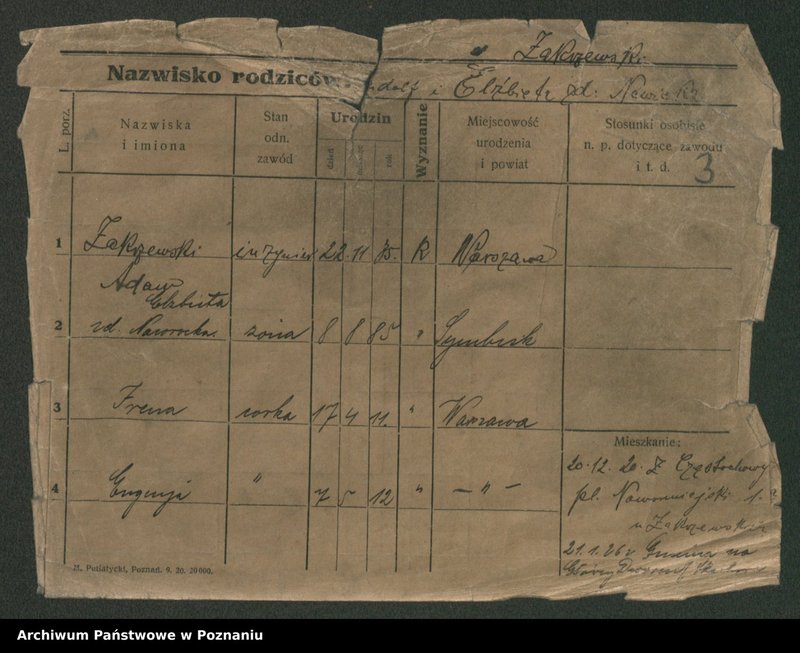 Zakrzewski
Nazwisko rodziców: i Elżbieta zd. Nawrocka
L. porz.
Nazwiska
i imiona
Stan
odn.
zawód
Urodzin
dzień
miesiąc
rok
Wyznanie
Miejscowość
urodzenia
i powiat
Stosunki osobiste
n. p. dotyczące zawodu
i t. d.
3
1 Zakrzewski inżynier 22 11 75. R Warszawa
Adam
Elżbieta
2 zd. Nawrocka. żona 8 8 85 "
3 Irena corka 17 4 11. " Warszawa
4 Eugenja " 7 5 12 " — " —
Mieszkanie:
20.12.20. Z Częstochowy
pl. Nowomiejski 1.
u Zakrzewskich
21.1.26r na
M. Putiatycki, Poznań. 9. 20. 20000.
Archiwum Państwowe w Poznaniu